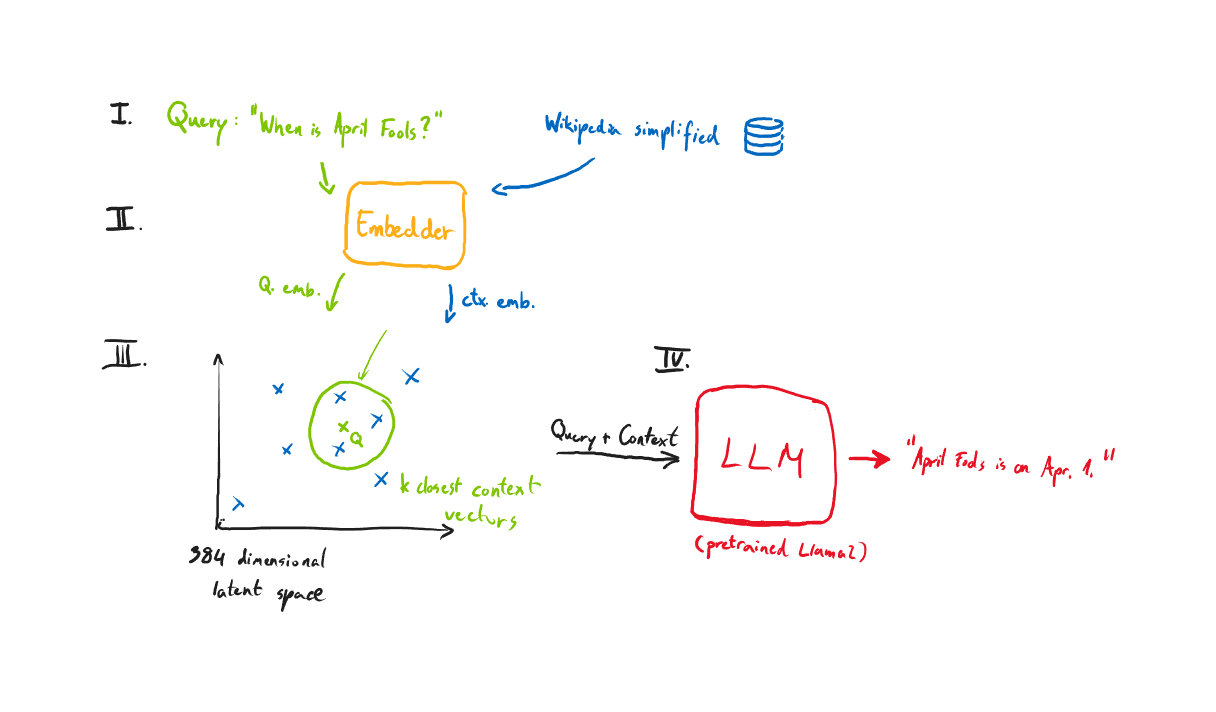 I. Query: "When is April Fools?"
Wikipedia simplified
II.
Embedder
Q. emb.
ctx. emb.
III.
Q
k closest context
vectors
384 dimensional
latent space
IV.
Query + Context
LLM
(pretrained Llama2)
"April Fools is on Apr. 1."